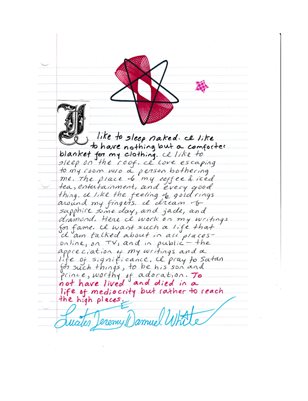 I like to sleep naked. I like
to have nothing but a comforter
blanket for my clothing. I like to
sleep on the roof. I love escaping
to my room w/o a person bothering
me. The place to my coffee & iced
tea, entertainment, and every good
thing. I like the feeling of gold rings
around my fingers. I dream of
sapphire some day, and jade, and
diamond. Here I work on my writings
for fame. I want such a life that
I am talked about in all places -
online, on TV, and in public - the
appreciation of my writings and a
life of significance. I pray to Satan
for such things, to be his son and
prince, worthy of adoration. To
not have lived and died in a
life of mediocrity but rather to reach
the high places.
Jeremy Damuel White